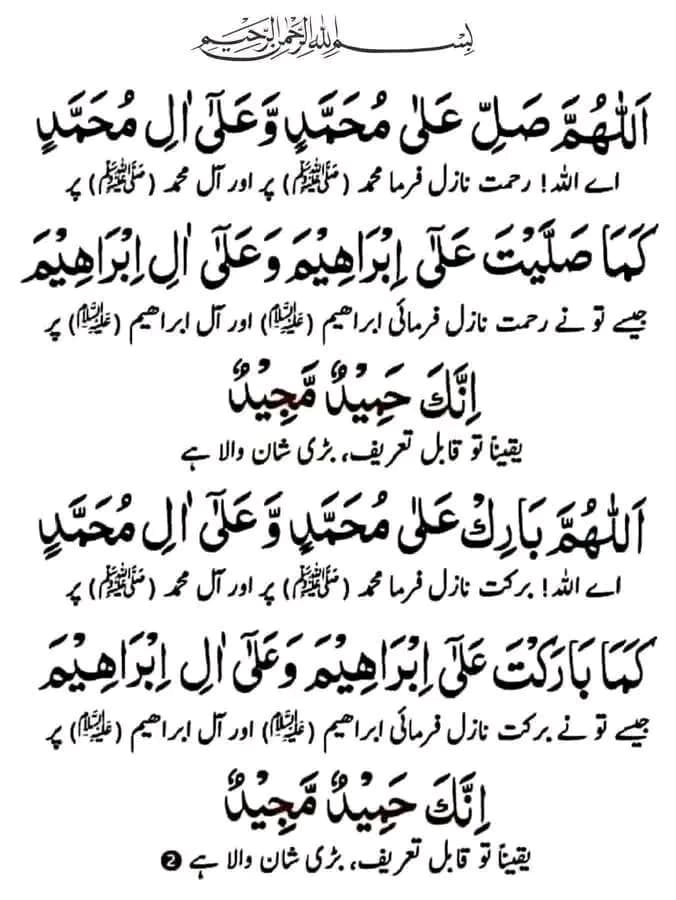 بِسْمِ اللهِ الرَّحْمٰنِ الرَّحِيْمِ
اَللّٰهُمَّ صَلِّ عَلٰى مُحَمَّدٍ وَّعَلٰٓى اٰلِ مُحَمَّدٍ
اے اللہ! رحمت نازل فرما محمد (ﷺ) پر اور آل محمد (ﷺ) پر
كَمَا صَلَّيْتَ عَلٰٓى اِبْرَاهِيْمَ وَعَلٰٓى اٰلِ اِبْرَاهِيْمَ
جیسے تو نے رحمت نازل فرمائی ابراھیم (علیہ السلام) اور آل ابراھیم (علیہ السلام) پر
اِنَّكَ حَمِيْدٌ مَّجِيْدٌ
یقیناً تو قابل تعریف، بڑی شان والا ہے
اَللّٰهُمَّ بَارِكْ عَلٰى مُحَمَّدٍ وَّعَلٰٓى اٰلِ مُحَمَّدٍ
اے اللہ! برکت نازل فرما محمد (ﷺ) پر اور آل محمد (ﷺ) پر
كَمَا بَارَكْتَ عَلٰٓى اِبْرَاهِيْمَ وَعَلٰٓى اٰلِ اِبْرَاهِيْمَ
جیسے تو نے برکت نازل فرمائی ابراھیم (علیہ السلام) اور آل ابراھیم (علیہ السلام) پر
اِنَّكَ حَمِيْدٌ مَّجِيْدٌ
یقیناً تو قابل تعریف، بڑی شان والا ہے ❷